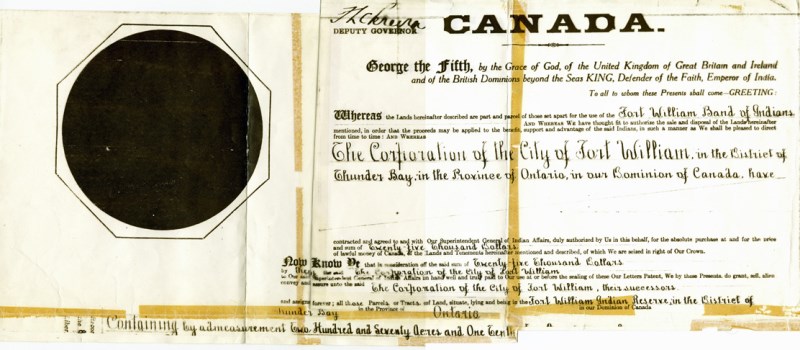 CANADA.
DEPUTY GOVERNOR
George the Fifth, by the Grace of God, of the United Kingdom of Great Britain and Ireland
and of the British Dominions beyond the Seas KING, Defender of the Faith, Emperor of India.
To all to whom these Presents shall come—GREETING:
Whereas the Lands hereinafter described are part and parcel of those set apart for the use of the Fort William Band of Indians
AND WHEREAS We have thought fit to authorize the sale and disposal of the Lands hereinafter
mentioned, in order that the proceeds may be applied to the benefit, support and advantage of the said Indians, in such a manner as We shall be pleased to direct
from time to time: AND WHEREAS
The Corporation of the City of Fort William, in the District of
Thunder Bay, in the Province of Ontario, in our Dominion of Canada, have
contracted and agreed to and with Our Superintendent General of Indian Affairs, duly authorized by Us in this behalf, for the absolute purchase at and for the price
and sum of Twenty-five Thousand Dollars
of lawful money of Canada, of the Lands and Tenements hereinafter mentioned and described, of which We are seized in right of Our Crown.
Now Know Ye that in consideration of the said sum of Twenty-five Thousand Dollars
by them the said The Corporation of the City of Fort William
to Our Superintendent General of Indian Affairs in hand well and truly paid to Our use at or before the sealing of these Our Letters Patent, We by these Presents, do grant, sell, alien
convey and assure unto the said The Corporation of the City of Fort William, their successors
and assigns forever; all those Parcels or Tracts of Land, situate, lying and being in the Fort William Indian Reserve, in the District of
Thunder Bay in the Province of Ontario in our Dominion of Canada
Containing by admeasurement Two Hundred and Seventy Acres and One Tenth